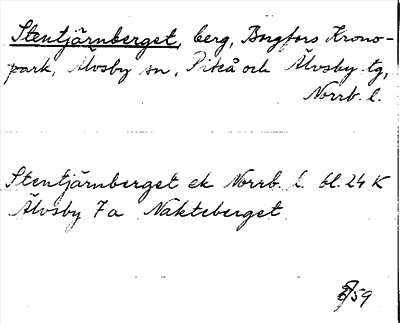 Stentjärnberget, berg, Borgfors Krono-
park, Älvsby sn, Piteå och Älvsby tg,
Norrb. l.
Stentjärnberget ek Norrb. l. bl. 24 K
Älvsby 7a Nakteberget
/59